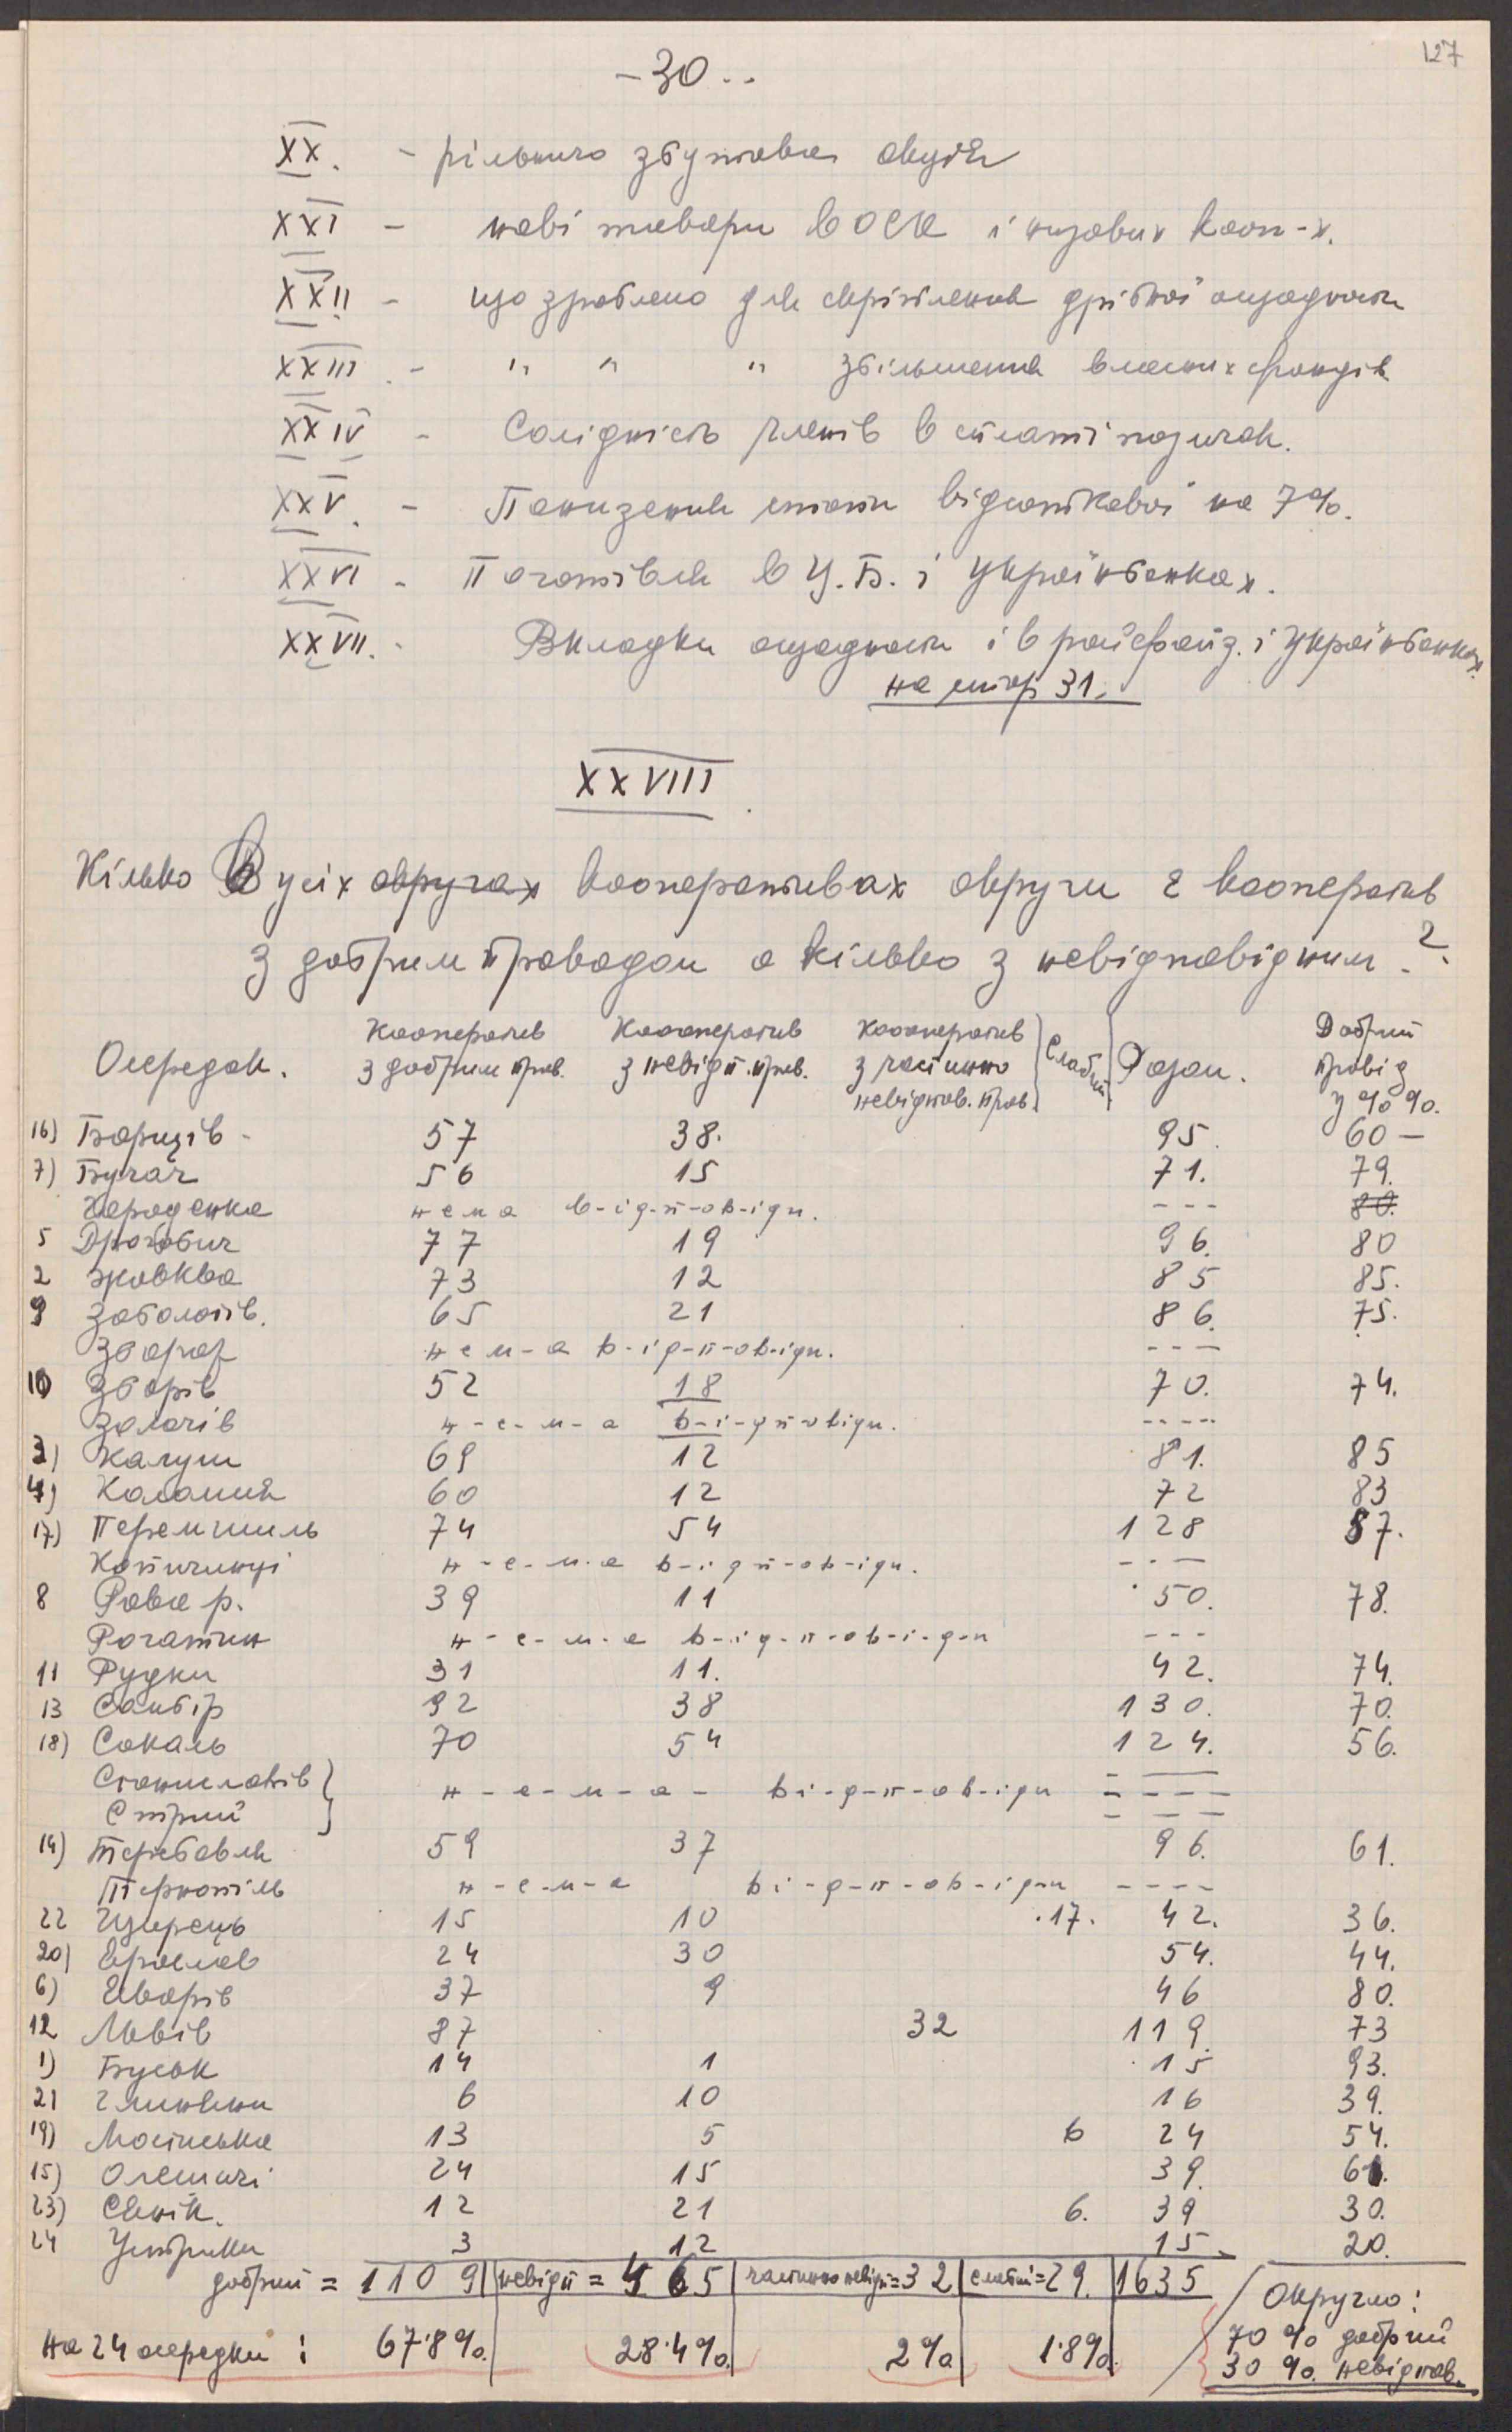 127
- 30 --
XX. - рільничо збутова акція
XXI - нові товари в ОСК і низових кооп-х.
XXII - що зроблено для скріплення дрібної ощадности
XXIII - " " " збільшення власних фондів
XXIV - Солідність членів в сплаті позичок.
XXV. - Пониження стопи відсоткової на 7%.
XXVI - Поготівля в Ц.Б. і Українбанках.
XXVII. - Вкладки ощадности і в райфайз. і Українбанках.
на стор 31.
XXVIII
Кілько В усіх округах кооперативах округи є кооператив
з добрим проводом а кілько з невідповідним?
Осередок. Кооператив з добрим пров. Кооператив з невідп. пров. Кооператив з частинно невідпов. пров. Слабий Разом. Добрий провід у %%.
16) Борщів - 57 38. 95. 60 —
7) Бучач 56 15 71. 79.
Городенка нема в-ід-п-ов-ідн. --- 80.
5 Дрогобич 77 19 96. 80
2 Жовква 73 12 85 85.
9 Заболотів. 65 21 86. 75.
Збараж нем-а в-ід-п-ов-ідн. ---
10 Зборів 52 18 70. 74.
Золочів н-е-м-а в-і-дп-овідн. ----
3) Калуш 69 12 81. 85
4) Коломия 60 12 72 83
17) Перемишль 74 54 128 57.
Копичинці н-е-м-а в-ід п-ов-ідн. ---
8 Рава р. 39 11 50. 78.
Рогатин н-е-м-а в-ід-п-ов-і-д-н ---
11 Рудки 31 11. 42. 74.
13 Самбір 92 38 130. 70.
18) Сокаль 70 54 124. 56.
Станиславів } н-е-м-а- ві-д-п-ов-ідн ----
Стрий
14) Теребовля 59 37 96. 61.
Тернопіль н-е-м-а ві-д-п-ов-ідн ----
22 Щирець 15 10 17. 42. 36.
20) Ярослав 24 30 54. 44.
6) Яворів 37 9 46 80.
12 Львів 87 32 119. 73
1) Буськ 14 1 15 93.
21 Глиняни 6 10 16 39.
19) Мостиська 13 5 6 24 54.
15) Олешичі 24 15 39. 61.
23) Сянік. 12 21 6. 39 30.
24 Устрики 3 12 15. 20.
добрий = 1109 невідп = 465 частинно невідп = 32 слабий = 29. 1635
Округло:
на 24 осередки: 67·8%. 28·4%. 2% 1·8%. 70% добрий
30%. невідпов.